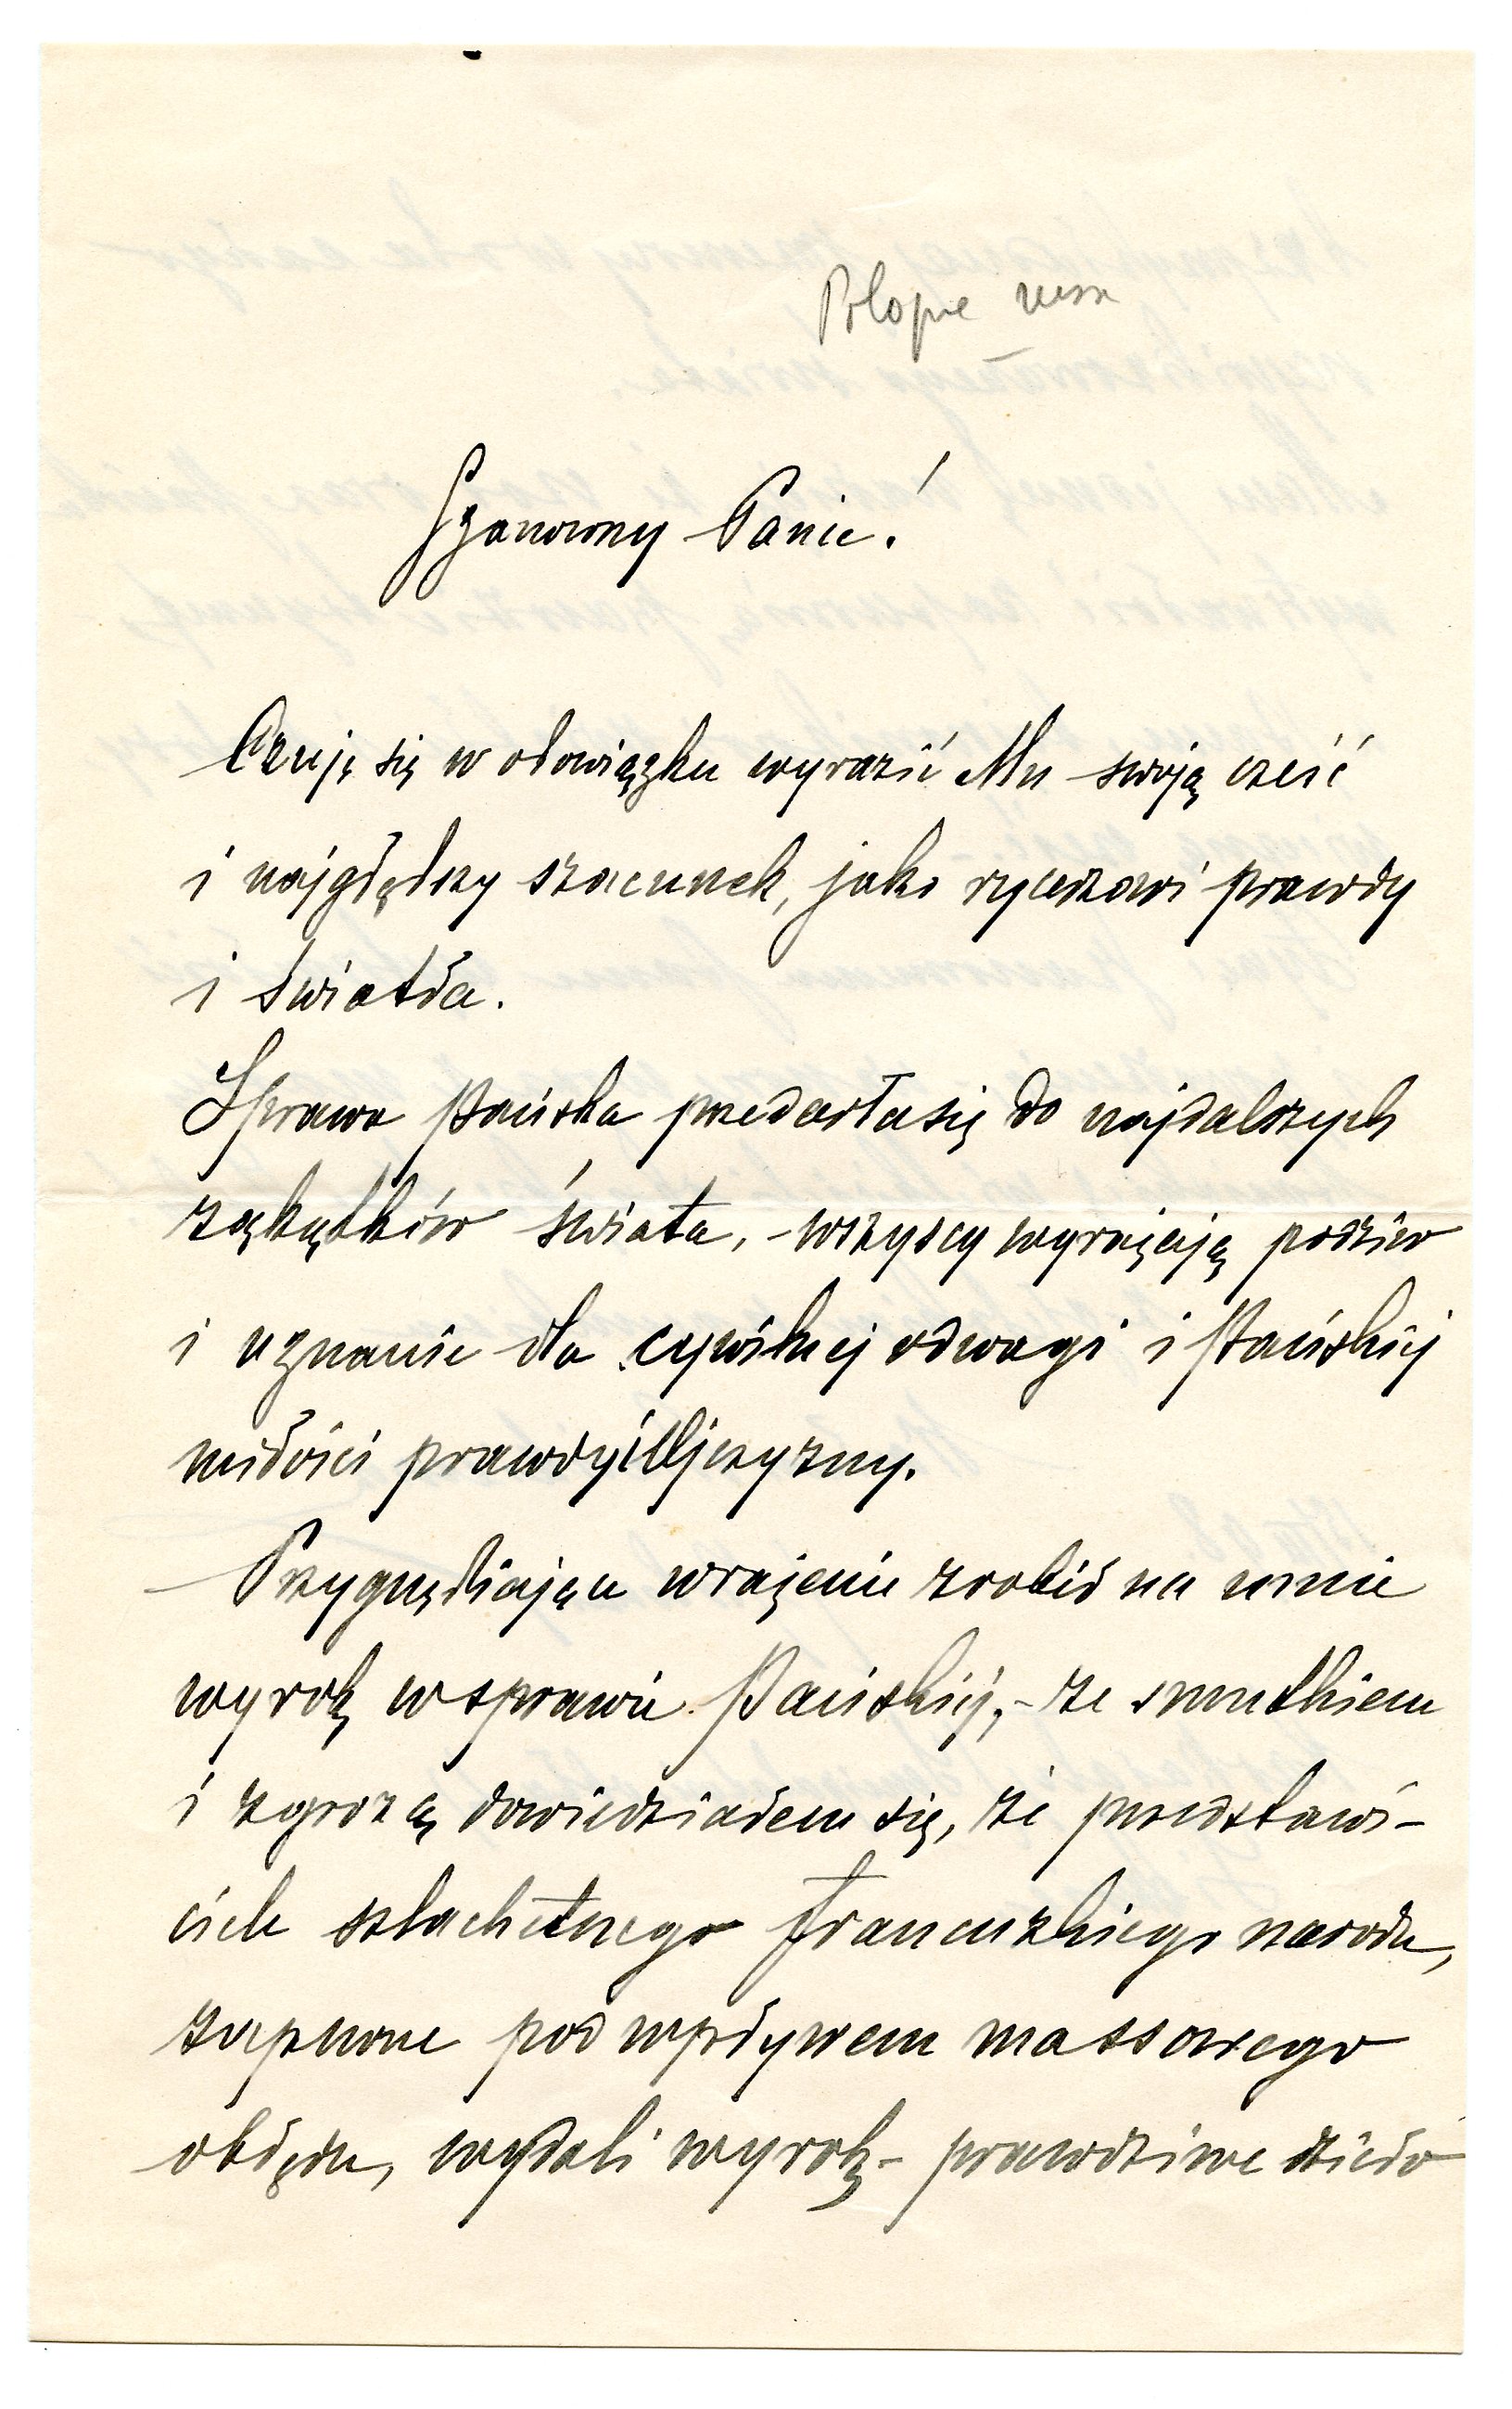 Szanowny Panie!
Czuję się w obowiązku wyrazić Mu swoją cześć
i najgłębszy szacunek, jako rycerzowi prawdy
i światła.
Sprawa Pańska przedarła się do najdalszych
zakątków świata, - wszyscy wyrażają podziw
i uznanie dla cywilnej odwagi i Pańskiej
miłości prawdy i Ojczyzny.
Przygnębiające wrażenie zrobił na mnie
wyrok w sprawie Pańskiej, - ze smutkiem
i zgrozą dowiedziałem się, że przedstawi-
ciele szlachetnego francuzkiego narodu,
zapewne pod wpływem massowego
obłędu, wydali wyrok - prawdziwe dzieło